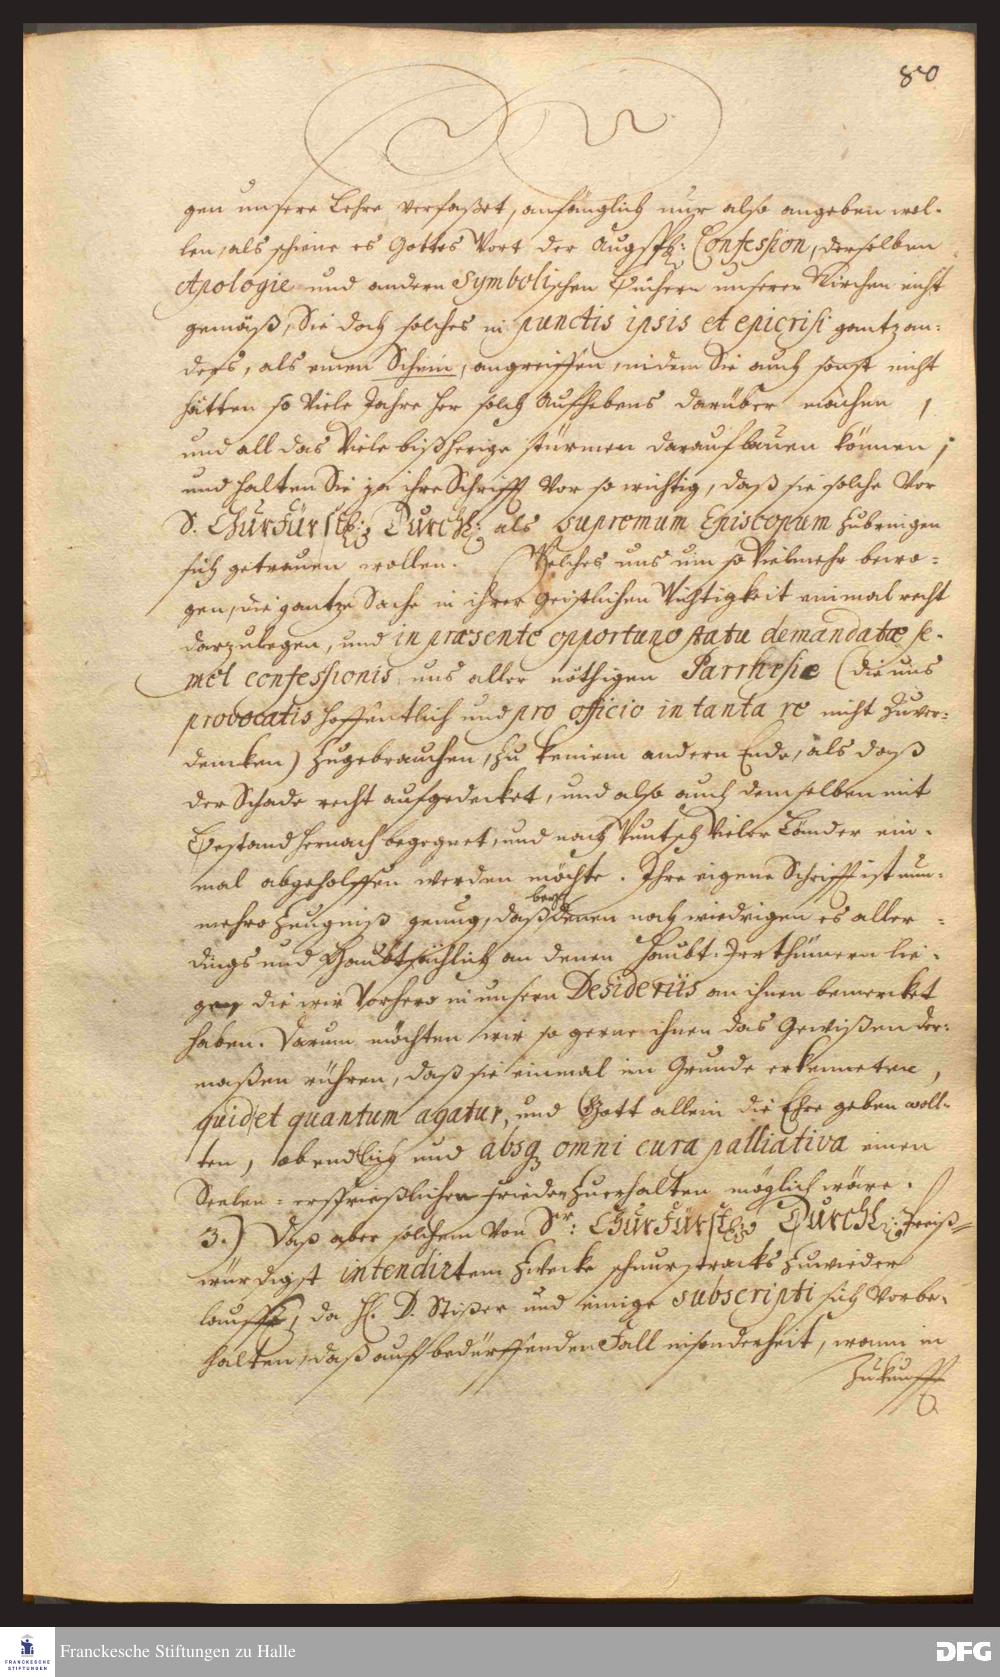 80
gen unsere Lehre verfaßet, anfänglich nur also angeben wol-
len, als schiene es Gottes Wort der Augspb: Confession, derselben
Apologie und andern Symbolischen Büchern unserer Kirchen nicht
gemäß, Sie doch solches in punctis ipsis et epicrisi gantz an-
ders, als einen Schein, angreiffen, indem Sie auch sonst nicht
hätten so viele Jahre her solch Aufhebens darüber machen,
und all das viele bißherige stürmen darauf bauen können;
und halten Sie ja ihre Schrifft vor so wichtig, daß sie solche vor
S. Churfürstl: Durchl: als supremum Episcopum zubringen
sich getrauen wollen. Welches uns um so vielmehr bewo-
gen, die gantze Sache in ihrer geistlichen Wichtigkeit einmal recht
darzulegen, und in præsente opportuno statu demandatæ se-
mel confessionis uns aller nöthigen Parrhesiæ (die uns
provocatis hoffentlich und pro officio in tanta re nicht zuver-
dencken) zugebrauchen, zu keinem andern Ende, als daß
der Schade recht aufgedecket, und also auch demselben mit
Bestand hernach begegnet, und nach Wuntsch vieler Länder ein-
mal abgeholffen werden möchte. Ihre eigene Schrifft ist nun-
mehro Zeugniß genug, daß denen noch wiedrigen es aller-
dings und Haubtsächlich an denen Haubt-Irrthümern lie-
gen die wir vorhero in unsern Desideriis an ihnen bemercket
haben. Darum möchten wir so gerne ihnen das Gewißen der-
maßen rühren, daß sie einmal im Grunde erkenneten,
quid et quantum agatur, und Gott allein die Ehre geben woll-
ten, obendlich und absq omni cura palliativa einen
Seelen-ersprießlichen Frieden zuerhalten möglich wäre.
3.) Daß aber solchem von Sr: Churfürstl: Durchl: Preiß-
würdigst intendirtem Zwecke schnurstracks zuwieder
lauffe, da H. D. Stißer und einige subscripti sich vorbe-
halten, daß auf bedürffenden Fall insonderheit, wann in
Zukunfft
Franckesche Stiftungen zu Halle
FRANCKESCHE
STIFTUNGEN
DFG